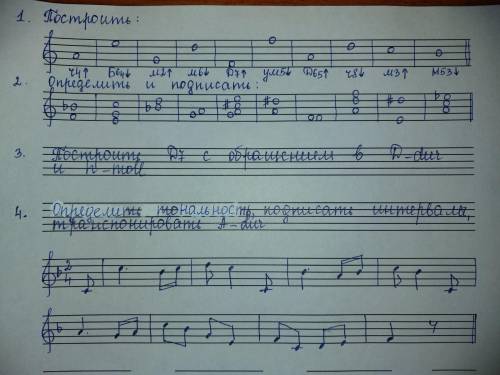 1. Построить:
ч4↑ Б64↓ м2↑ м6↓ D7↑ ум5↓ D65↑ ч8↓ м3↑ М53↓
2. Определить и подписать:
3. Построить D7 с обращением в D-dur
и h-moll
4. Определить тональность, подписать интервалы,
транспонировать A-dur
2
4